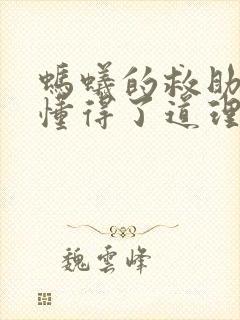 螞蟻的救助
懂得了道理
魏雲峰